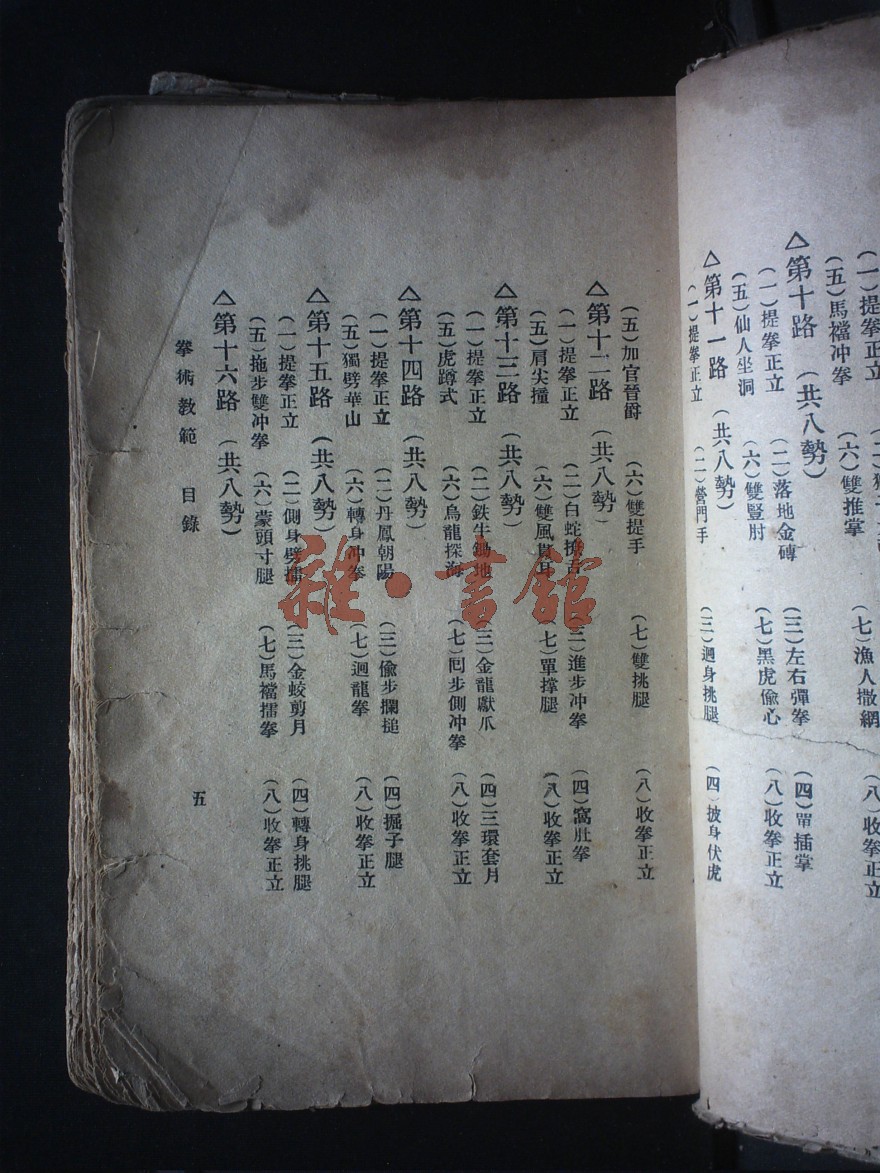 (一)提拳正立
(五)馬襠冲拳 (六)雙推掌 (七)漁人撒網 (八)收拳正立
△第十路 (共八勢)
(一)提拳正立 (二)落地金磚 (三)左右彈拳 (四)單插掌
(五)仙人坐洞 (六)雙豎肘 (七)黑虎偷心 (八)收拳正立
△第十一路 (共八勢)
(一)提拳正立 (二)營門手 (三)迴身挑腿 (四)披身伏虎
(五)加官晉爵 (六)雙提手 (七)雙挑腿 (八)收拳正立
△第十二路 (共八勢)
(一)提拳正立 (二)白蛇 (三)進步冲拳 (四)窩肚拳
(五)肩尖撞 (六)雙風貫耳 (七)單撑腿 (八)收拳正立
△第十三路 (共八勢)
(一)提拳正立 (二)鉄牛鋤地 (三)金龍獻爪 (四)三環套月
(五)虎蹲式 (六)烏龍探海 (七)囘步側冲拳 (八)收拳正立
△第十四路 (共八勢)
(一)提拳正立 (二)丹鳳朝陽 (三)偸步攔搥 (四)掘子腿
(五)獨劈華山 (六)轉身冲拳 (七)迴龍拳 (八)收拳正立
△第十五路 (共八勢)
(一)提拳正立 (二)側身劈擂 (三)金蛟剪月 (四)轉身挑腿
(五)拖步雙冲拳 (六)蒙頭寸腿 (七)馬襠擂拳 (八)收拳正立
△第十六路 (共八勢)
拳術教範 目錄 五
雜·書館